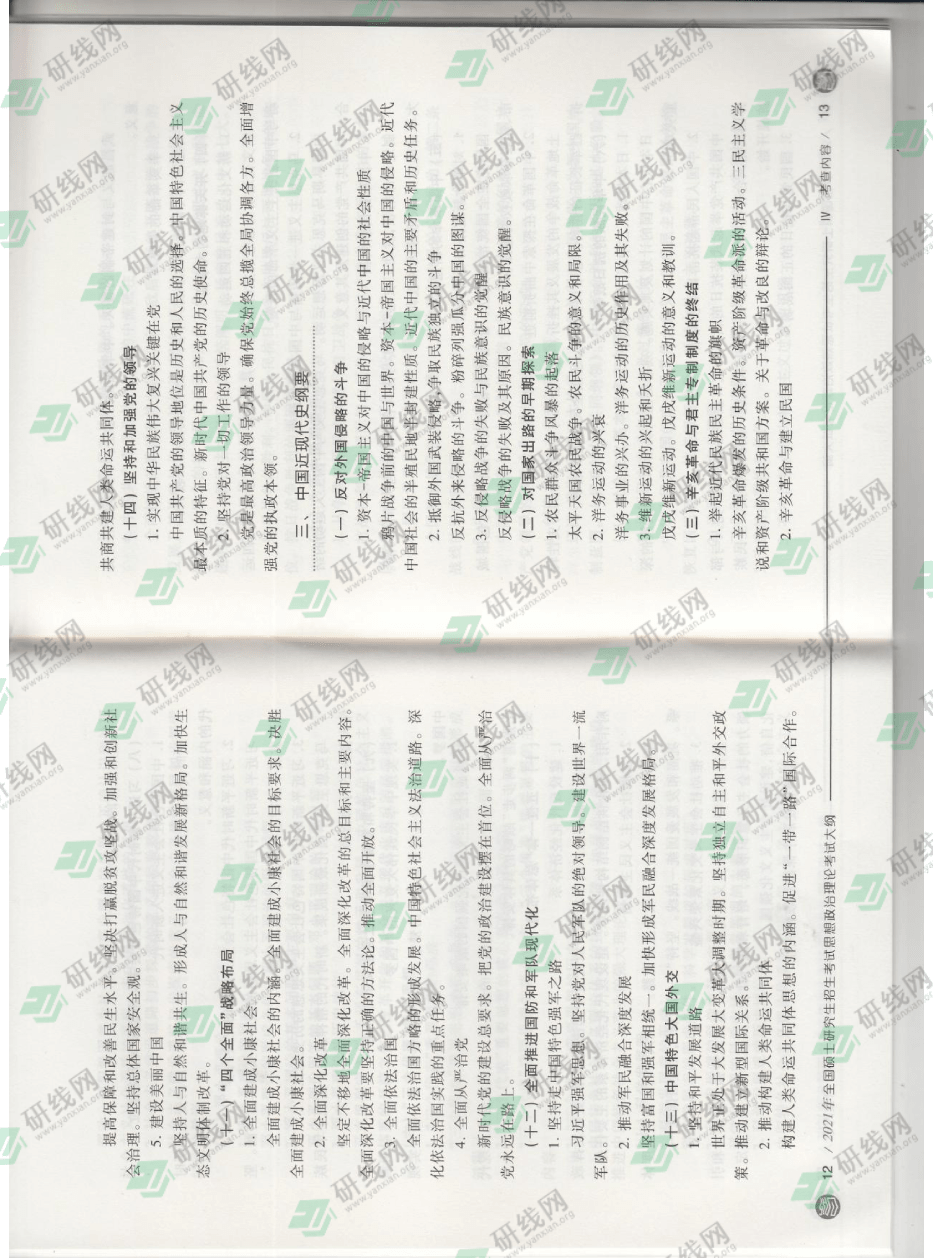 提高保障和改善民生水平。坚决打赢脱贫攻坚战。加强和创新社
会治理。坚持总体国家安全观。
5. 建设美丽中国
坚持人与自然和谐共生。形成人与自然和谐发展新格局。加快生
态文明体制改革。
(十一)“四个全面”战略布局
1. 全面建成小康社会
全面建成小康社会的内涵。全面建成小康社会的目标要求。决胜
全面建成小康社会。
2. 全面深化改革
坚定不移地全面深化改革。全面深化改革的总目标和主要内容。
全面深化改革要坚持正确的方法论。推动全面开放。
3. 全面依法治国
全面依法治国方略的形成发展。中国特色社会主义法治道路。深
化依法治国实践的重点任务。
4. 全面从严治党
新时代党的建设总要求。把党的政治建设摆在首位。全面从严治
党永远在路上。
(十二)全面推进国防和军队现代化
1. 坚持走中国特色强军之路
习近平强军思想。坚持党对人民军队的绝对领导。建设世界一流
军队。
2. 推动军民融合深度发展
坚持富国和强军相统一。加快形成军民融合深度发展格局。
(十三)中国特色大国外交
1. 坚持和平发展道路
世界正处于大发展大变革大调整时期。坚持独立自主和平外交政
策。推动建立新型国际关系。
2. 推动构建人类命运共同体
构建人类命运共同体思想的内涵。促进“一带一路”国际合作。
12 / 2021年全国硕士研究生招生考试思想政治理论考试大纲
共商共建人类命运共同体。
(十四)坚持和加强党的领导
1. 实现中华民族伟大复兴关键在党
中国共产党的领导地位是历史和人民的选择。中国特色社会主义
最本质的特征。新时代中国共产党的历史使命。
2. 坚持党对一切工作的领导
党是最高政治领导力量。确保党始终总揽全局协调各方。全面增
强党的执政本领。
三、中国近现代史纲要
(一)反对外国侵略的斗争
1. 资本-帝国主义对中国的侵略与近代中国的社会性质
鸦片战争前的中国与世界。资本-帝国主义对中国的侵略。近代
中国社会的半殖民地半封建性质。近代中国的主要矛盾和历史任务。
2. 抵御外国武装侵略、争取民族独立的斗争
反抗外来侵略的斗争。粉碎列强瓜分中国的图谋。
3. 反侵略战争的失败与民族意识的觉醒
反侵略战争的失败及其原因。民族意识的觉醒。
(二)对国家出路的早期探索
1. 农民群众斗争风暴的起落
太平天国农民战争。农民斗争的意义和局限。
2. 洋务运动的兴衰
洋务事业的兴办。洋务运动的历史作用及其失败。
3. 维新运动的兴起和夭折
戊戌维新运动。戊戌维新运动的意义和教训。
(三)辛亥革命与君主专制制度的终结
1. 举起近代民族民主革命的旗帜
辛亥革命爆发的历史条件。资产阶级革命派的活动。三民主义学
说和资产阶级共和国方案。关于革命与改良的辩论。
2. 辛亥革命与建立民国
Ⅳ 考查内容 / 13
研线网
www.yanxian.org